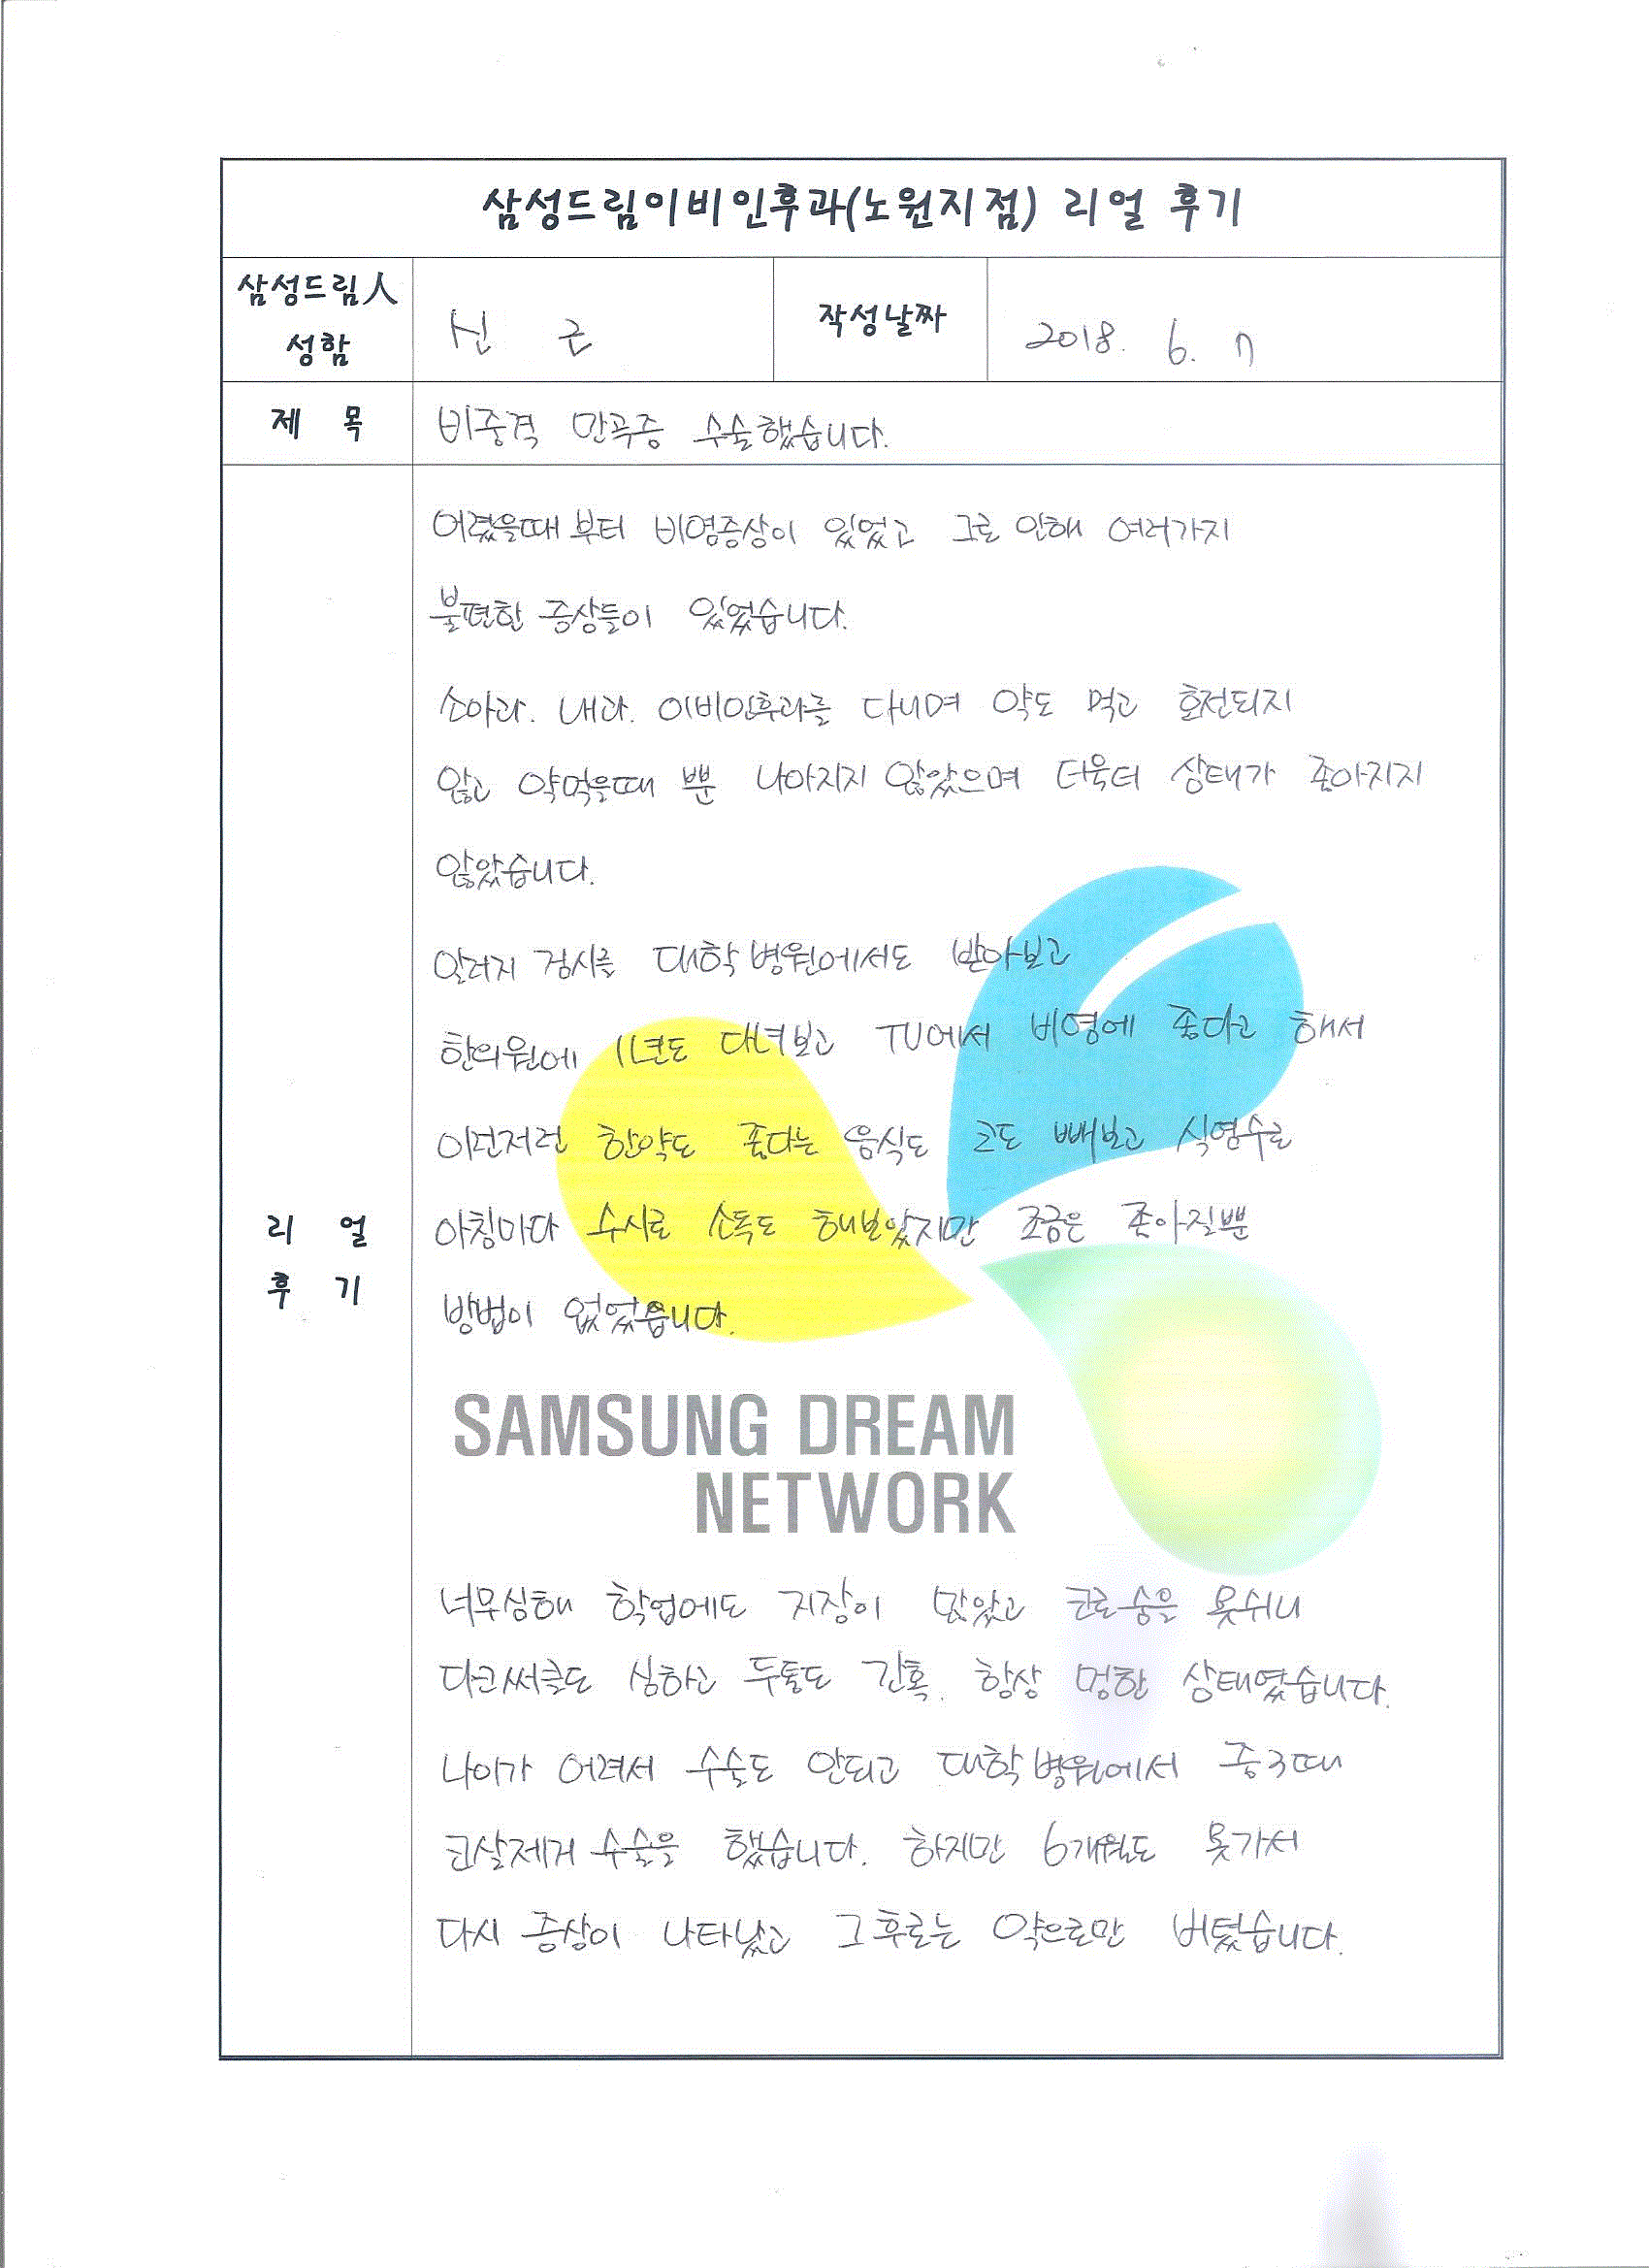 삼성드림이비인후과(노원지점) 리얼 후기
삼성드림人
성함
신 근
작성날짜
2018. 6. 7
제 목
비중격 만곡증 수술했습니다.
어렸을때 부터 비염증상이 있었고 그로 인해 여러가지
불편한 증상들이 있었습니다.
소아과. 내과. 이비인후과를 다니며 약도 먹고 호전되지
않고 약먹을때 뿐 나아지지 않았으며 더욱더 상태가 좋아지지
않았습니다.
알러지 검사를 대학병원에서도 받아보고
한의원에 1년도 대녀보고 TV에서 비염에 좋다고 해서
이런저런 한약도 좋다는 음식도 코도 빼보고 식염수로
아침마다 수시로 소독도 해보았지만 조금은 좋아질뿐
방법이 없었습니다.
리 얼
후 기
SAMSUNG DREAM
NETWORK
너무심해 학업에도 지장이 많았고 코로숨을 못쉬니
다크써클도 심하고 두통도 간혹. 항상 멍한 상태였습니다.
나이가 어려서 수술도 안되고 대학병원에서 중3때
코살제거 수술을 했습니다. 하지만 6개월도 못가서
다시 증상이 나타났고 그후로는 약으로만 버텼습니다.